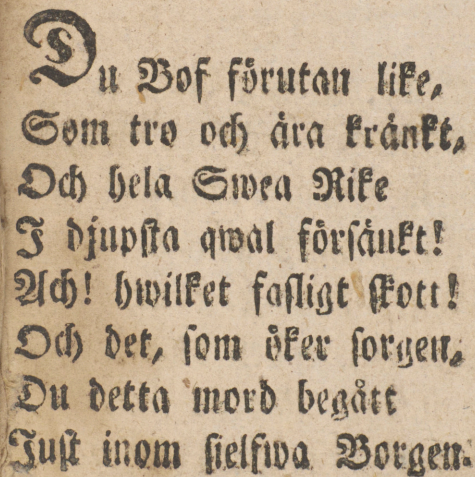 Du Bof förutan like,
Som tro och ära kränkt,
Och hela Swea Rike
I djupsta qwal försänkt!
Ach! hwilket fasligt skott!
Och det, som öker sorgen,
Du detta mord begått
Just inom sielfwa Borgen.